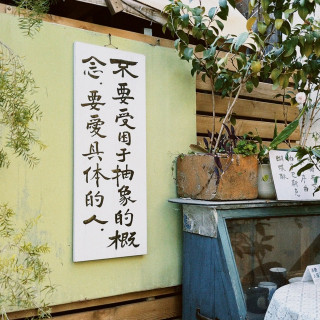 不要受困于抽象的概
念,要愛具体的人.